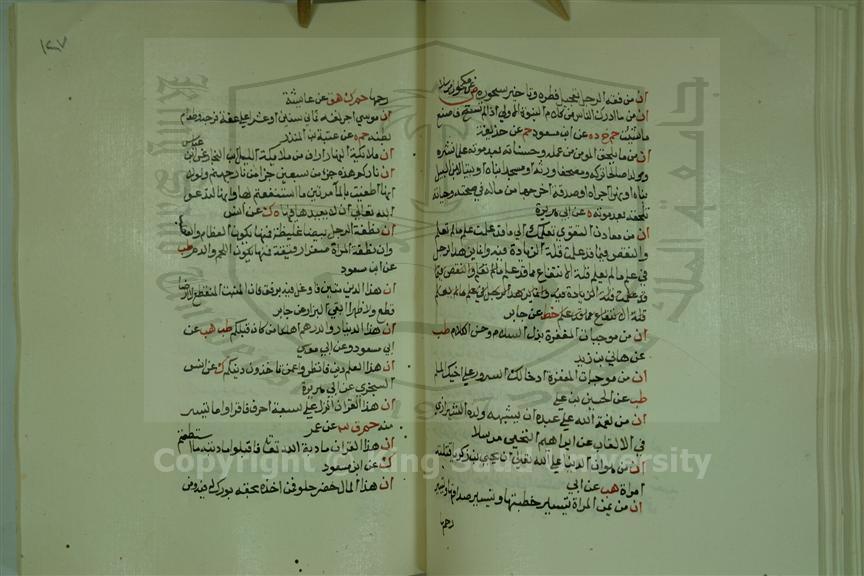 ان من فقه الرجل تعجيل فطره وتاخير سحوره ص عن مكحول مرسلا
ان من ما ادرك الناس من كلام النبوة الاولي اذا لم تستح فاصنع
ما شئت حم خ د ه عن ابن مسعود حم عن حذيفة
ان من ما يلحق المومن من عمله وحسناته بعد موته علما نشره
وولدا صالحا تركه ومصحفا ورثه او مسجدا بناه او بيتا لابن السبيل
بناه او نهرا اجراه او صدقة اخرجها من ماله في صحته وحياته
تلحقه بعد موته ه عن ابي هريرة
ان من معادن التقوي تعلمك الي ما قد علمت علم ما لم تعلم
والنقص فيما قد علمت قلة الزيادة فيه وانما يزهد الرجل
في علم ما لم يعلم قلة الانتفاع بما قد علم
قلة الانتفاع بما قد علم خط عن جابر
ان من موجبات المغفرة بذل السلام وحسن الكلام طب
عن هاني بن يزيد
ان من موجبات المغفرة ادخالك السرور علي اخيك المسلم
طب عن الحسن بن علي
ان من نعمة الله علي عبده ان يشبهه ولده الشيرازي
في الالقاب عن ابراهيم النخعي مرسلا
ان من هوان الدنيا علي الله تعالي ان يحيي بن زكريا قتلته
امراة هب عن ابي
ان من يمن المراة تيسير خطبتها وتيسير صداقها وتيسير
رحمها
١٤٧
رحمها حم ك هق عن عائشة
ان موسي اجر نفسه ثماني سنين او عشرا علي عفة فرجه وطعام
بطنه حم ه عن عتبة بن المنذر
ان ملائكة النهار ارأف من ملائكة الليل ابن النجار عن ابن عباس
ان ناركم هذه جزء من سبعين جزءا من نار جهنم ولولا
انها اطفئت بالماء مرتين ما استنفعتم بها وانها لتدعو
الله تعالي ان لا يعيدها فيها ه ك عن انس
ان نطفة الرجل بيضاء غليظة فمنها يكون العظام والعصب
وان نطفة المراة صفراء رقيقة فمنها يكون اللحم والدم طب
عن ابن مسعود
ان هذا الدين متين فاوغل فيه برفق فان المنبت لا ارضا
قطع ولا ظهرا ابقي البزار عن جابر
ان هذا الدينار والدرهم اهلكا من كان قبلكم طب هب عن
ابي مسعود وعن ابي موسي
ان هذا العلم دين فانظروا عمن تاخذون دينكم ك عن انس
السجزي عن ابي هريرة
ان هذا القران انزل علي سبعة احرف فاقراوا ما تيسر
منه حم ق عن عمر
ان هذا القران مادبة الله تعا فاقبلوا مادبته ما استطعتم
ك عن ابن مسعود
ان هذا المال خضر حلو فمن اخذه بحقه بورك له فيه ومن
Copyright King Saud University